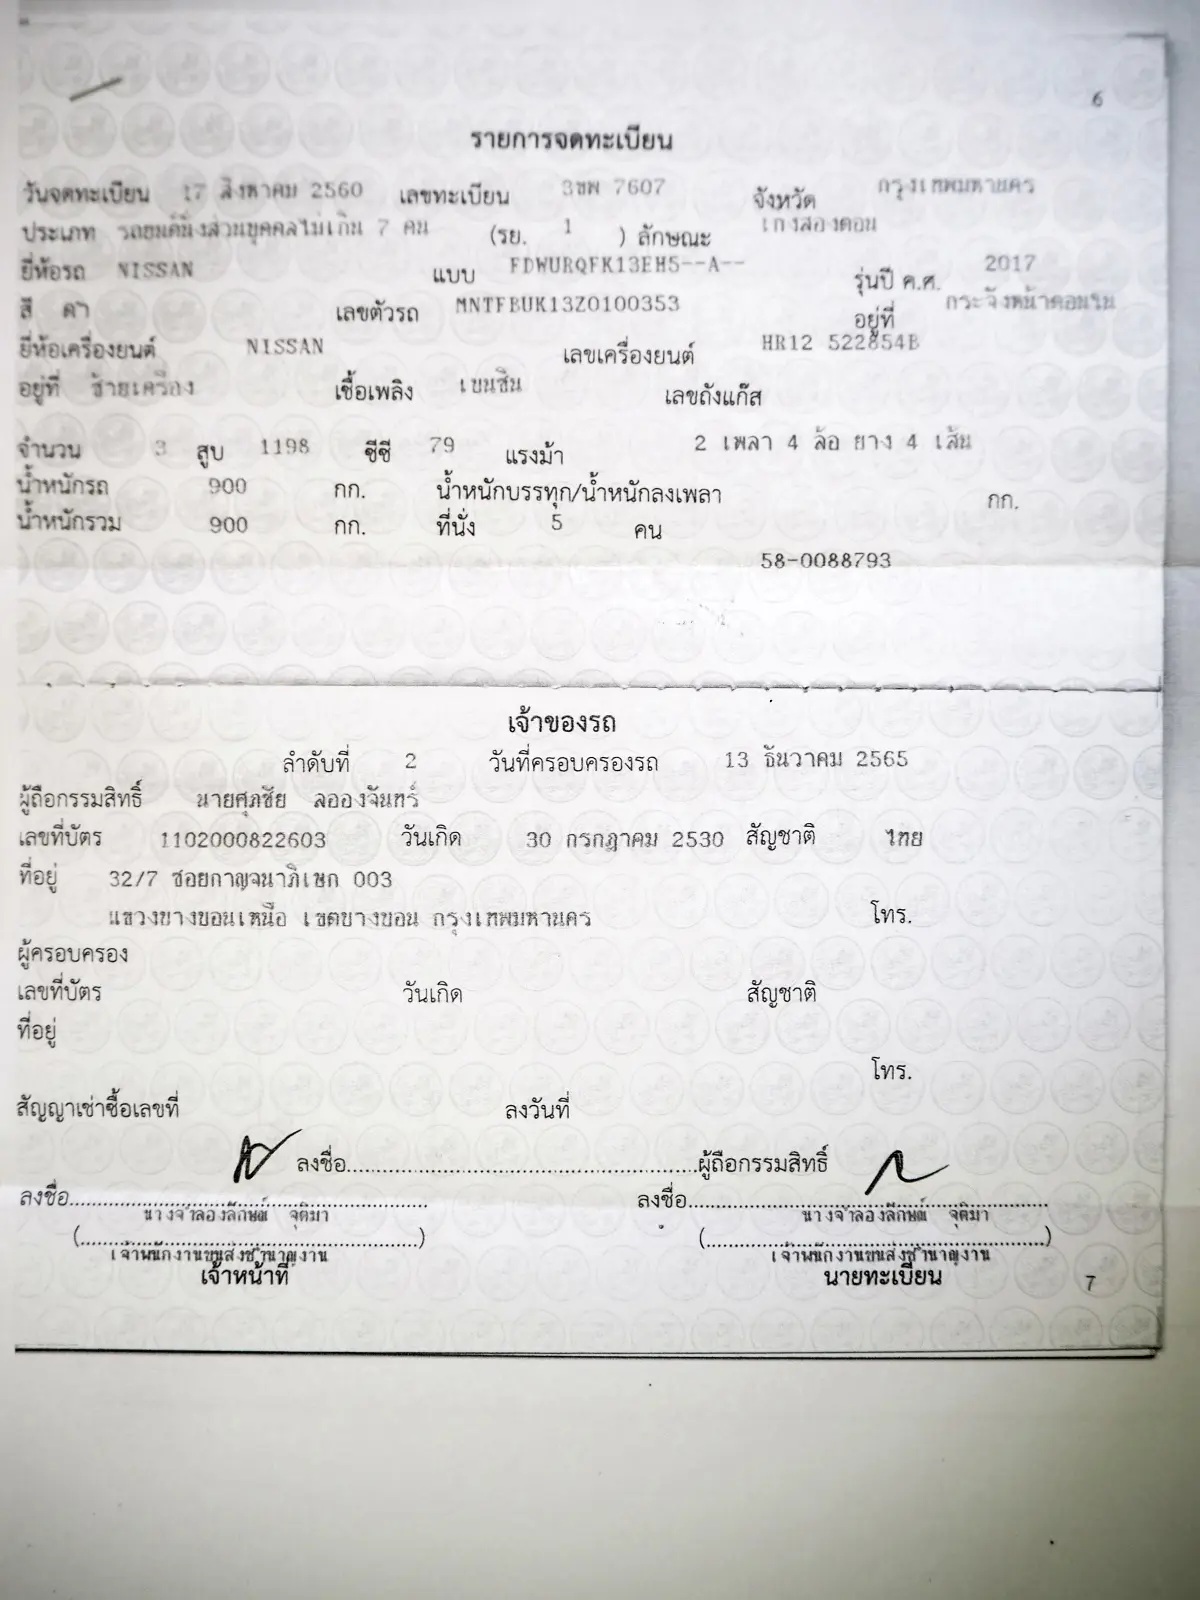 6
รายการจดทะเบียน
วันจดทะเบียน 17 สิงหาคม 2560 เลขทะเบียน 3ขพ 7607 จังหวัด กรุงเทพมหานคร
ประเภท รถยนต์นั่งส่วนบุคคลไม่เกิน 7 คน (รย. 1 ) ลักษณะ เก๋งสองตอน
ยี่ห้อรถ NISSAN แบบ FDWURQFK13EH5--A-- รุ่นปี ค.ศ. 2017
สี ดำ เลขตัวรถ MNTFBUK13Z0100353 อยู่ที่ กระจังหน้าคอมใน
ยี่ห้อเครื่องยนต์ NISSAN เลขเครื่องยนต์ HR12 522854B
อยู่ที่ ซ้ายเครื่อง เชื้อเพลิง เบนซิน เลขถังแก๊ส
จำนวน 3 สูบ 1198 ซีซี 79 แรงม้า 2 เพลา 4 ล้อ ยาง 4 เส้น
น้ำหนักรถ 900 กก. น้ำหนักบรรทุก/น้ำหนักลงเพลา กก.
น้ำหนักรวม 900 กก. ที่นั่ง 5 คน
58-0088793
เจ้าของรถ
ลำดับที่ 2 วันที่ครอบครองรถ 13 ธันวาคม 2565
ผู้ถือกรรมสิทธิ์ นายศุภชัย ลอองจันทร์
เลขที่บัตร 1102000822603 วันเกิด 30 กรกฎาคม 2530 สัญชาติ ไทย
ที่อยู่ 32/7 ซอยกาญจนาภิเษก 003
แขวงบางบอนเหนือ เขตบางบอน กรุงเทพมหานคร โทร.
ผู้ครอบครอง
เลขที่บัตร วันเกิด สัญชาติ
ที่อยู่
โทร.
สัญญาเช่าซื้อเลขที่ ลงวันที่
ลงชื่อ....................ผู้ถือกรรมสิทธิ์
ลงชื่อ.................... ลงชื่อ....................
นางจำลองลักษณ์ จุติมา นางจำลองลักษณ์ จุติมา
(....................) (....................)
เจ้าพนักงานขนส่งชำนาญงาน เจ้าพนักงานขนส่งชำนาญงาน
เจ้าหน้าที่ นายทะเบียน 7